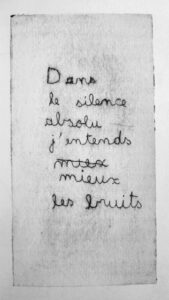 Dans
le silence
absolu
j'entends
miex
mieux
les bruits